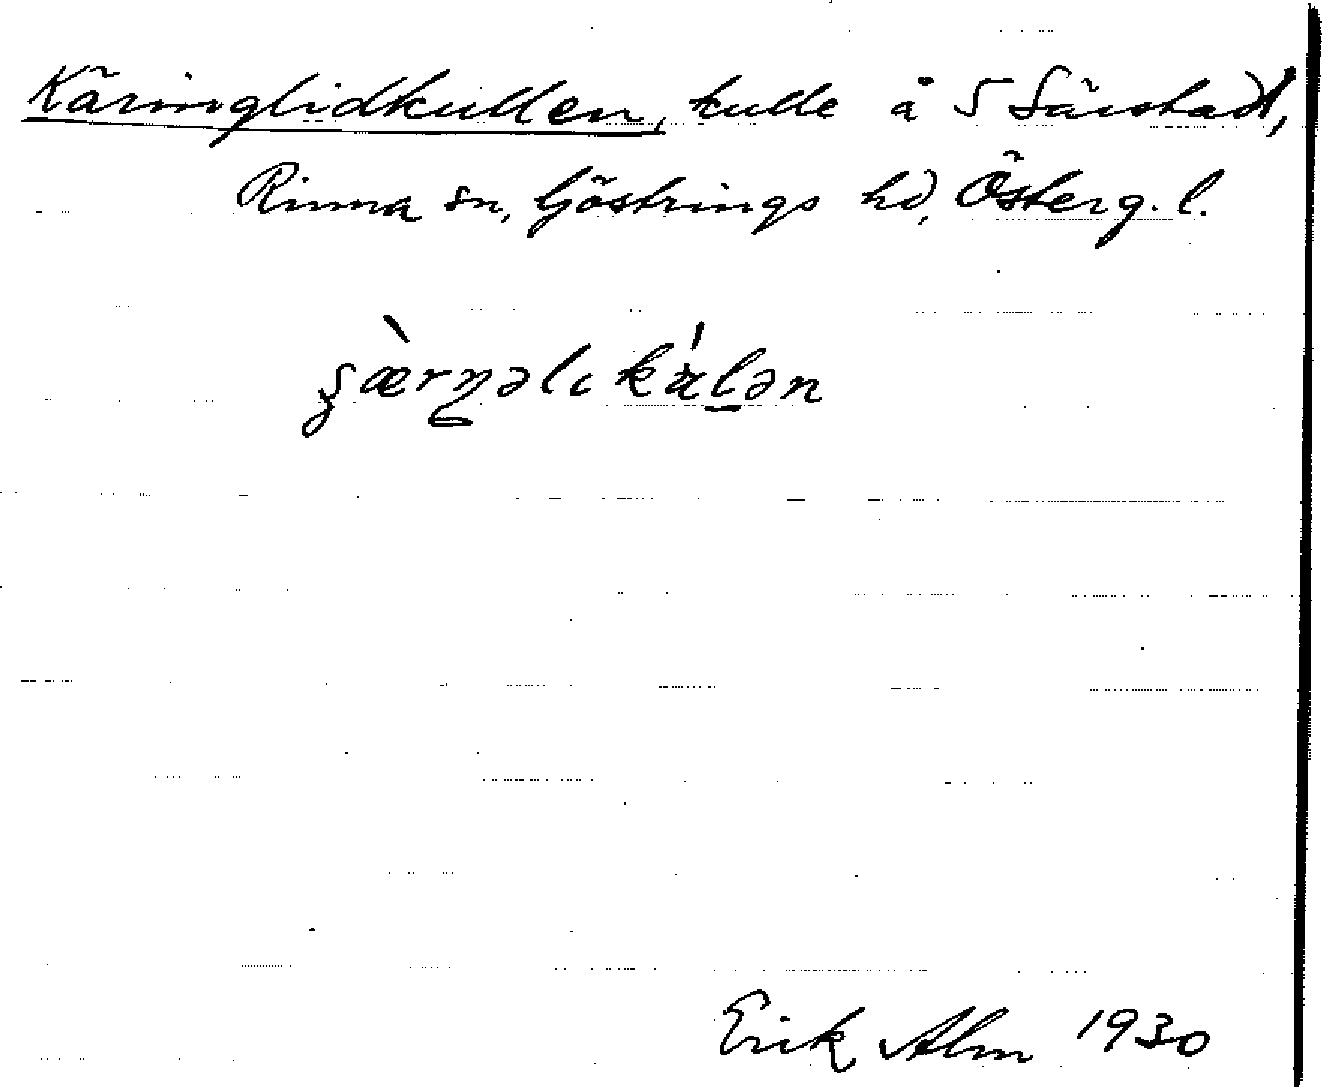 Käringlidkullen, kulle å S Särstad,
Rinna sn, Göstrings hd, Österg. l.
Erik Alm 1930